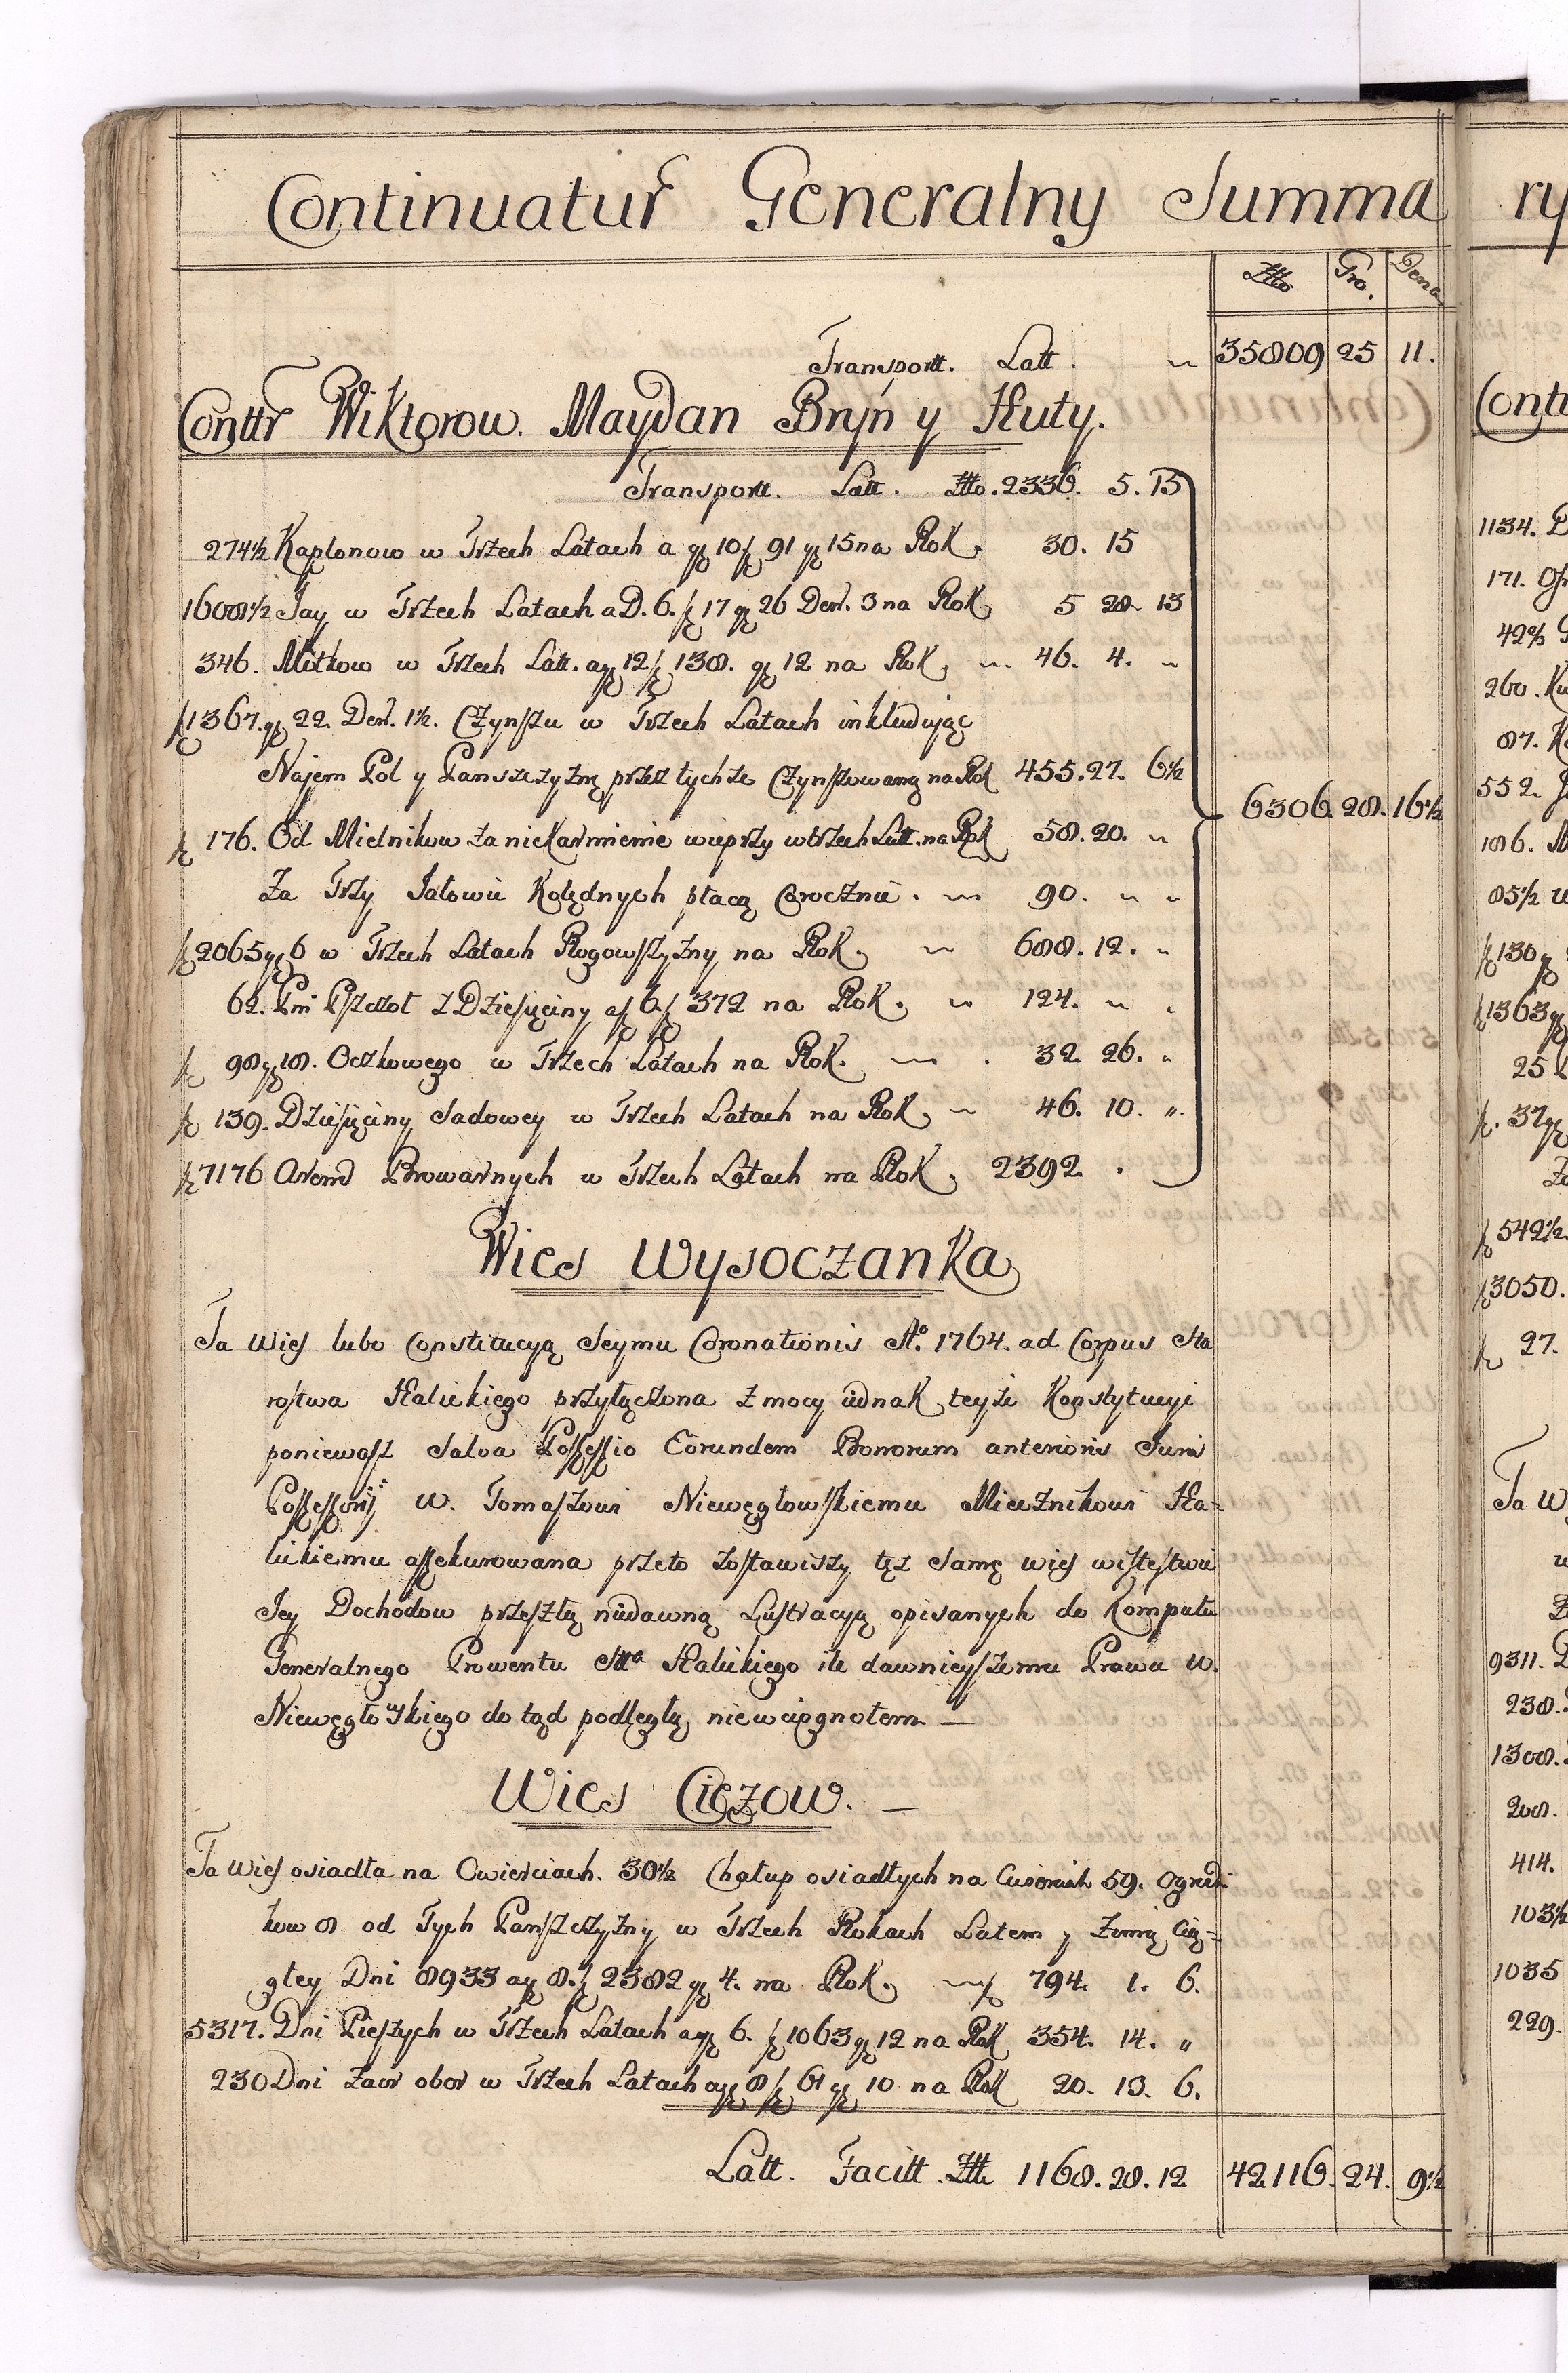 Continuatur Generalny Summa
Złło Gro. Dena
Transportt. Latt. 35809 25 11.
Conttr Wiktorow. Maydan Bryn y Huty.
Transportt. Latt. Złło. 2336. 5. 15
274½ Kapłonow w Trzech Latach a gr 10 f 91 gr 15 na Rok. 30. 15
1608½ Jay w Trzech Latach a D. 6. f 17 gr 26 Den. 3 na Rok 5 28. 13
346. Mitkow w Trzech Latt. a gr 12 f 138. gr 12 na Rok 46. 4. „
f 1367. gr 22. Den. 1½. Czynszu w Trzech Latach inkluduiąc
Najem Pol y Panszczyznę przez tychże Czynszowaną na Rok 455. 27. 6½
f 176. Od Mielnikow za niekarmienie wieprzy w trzech Latt. na Rok 58. 20. „
6306. 28. 16½
Za Trzy Jałowic Kolędnych płacą Corocznie. 90. „ „
f 2065 gr 6 w Trzech Latach Rogowszyzny na Rok 688. 12. „
62. Pni Pszczoł z Dziesięciny a f 6. f 372 na Rok. 124. „ „
f 98 gr 18. Oczkowego w Trzech Latach na Rok. 32. 26. „
f 139. Dziesięciny Sadowey w Trzech Latach na Rok 46. 10. „
f 7176 Arend Browarnych w Trzech Latach na Rok 2392.
Wies Wysoczanka
Ta Wies lubo Constitucyą Seymu Coronationis Aº. 1764. ad Corpus Sta
rostwa Halickiego przyłączona z mocy iednak teyże Konstytucyi
poniewasz Salva Possessio Eorundem Bonorum anterioris Juris
Possessorij W. Tomaszowi Niewęgłowskiemu Miecznikowi Ha-
lickiemu assekurowana przeto zostawiszy tęż Samę wies w istestwie
Jey Dochodow przeszłą niedawną Lustracyą opisanych do Komputu
Generalnego Prowentu Stta Halickiego ile dawnieyszemu Prawu W.
Niewęgłowskiego do tąd podległą niewciągnołem —
Wies Ciężow. —
Ta Wies osiadła na Cwierciach. 30½ Chałup osiadłych na Cwierciach 59. Ogrodi
kow 8 od Tych Panszczyzny w Trzech Rokach Latem y Zimą Cią-
głey Dni 8933 a gr 8. f 2382 gr 4. na Rok. 794. 1. 6.
5317. Dni Pieszych w Trzech Latach a gr 6. f 1063 gr 12 na Rok 354. 14. „
230 Dni Zaor obor w Trzech Latach a gr 8 f 61 gr 10 na Rok 20. 13. 6.
Latt. Facitt. Złł 1168. 28. 12 42116. 24. 9½
ry
Contt
1134.
171.
42⅔
260. Ku
87. K
552.
186. M
85½
f 130
f 1363
25
f. 37
Za
f 542½
f 3050.
f 27.
Ta W
9311.
238.
1308.
208.
414.
103½
1035
229.